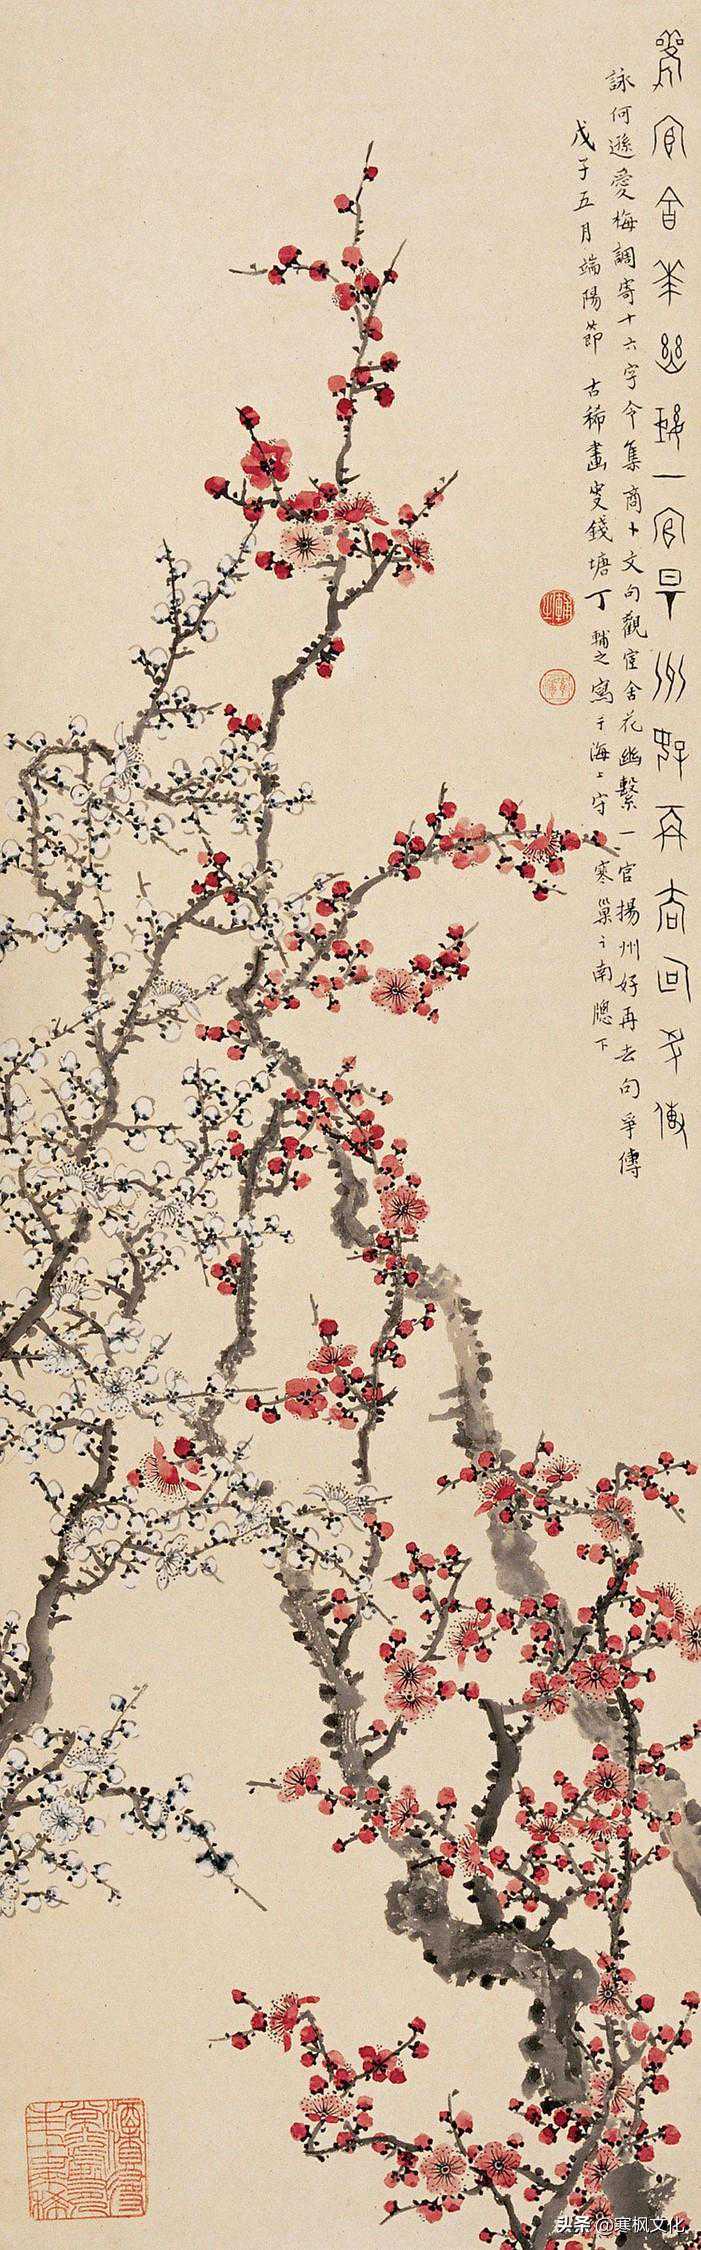 觀宦舍花幽繫一官揚州好再去句爭傳
詠何遜愛梅調寄十六字令集商卜文句觀宦舍花幽繫一官揚州好再去句爭傳
戊子五月端陽節 古稀畫叟錢塘丁輔之寫于海上守寒巢之南牕下
头条 @寒枫文化